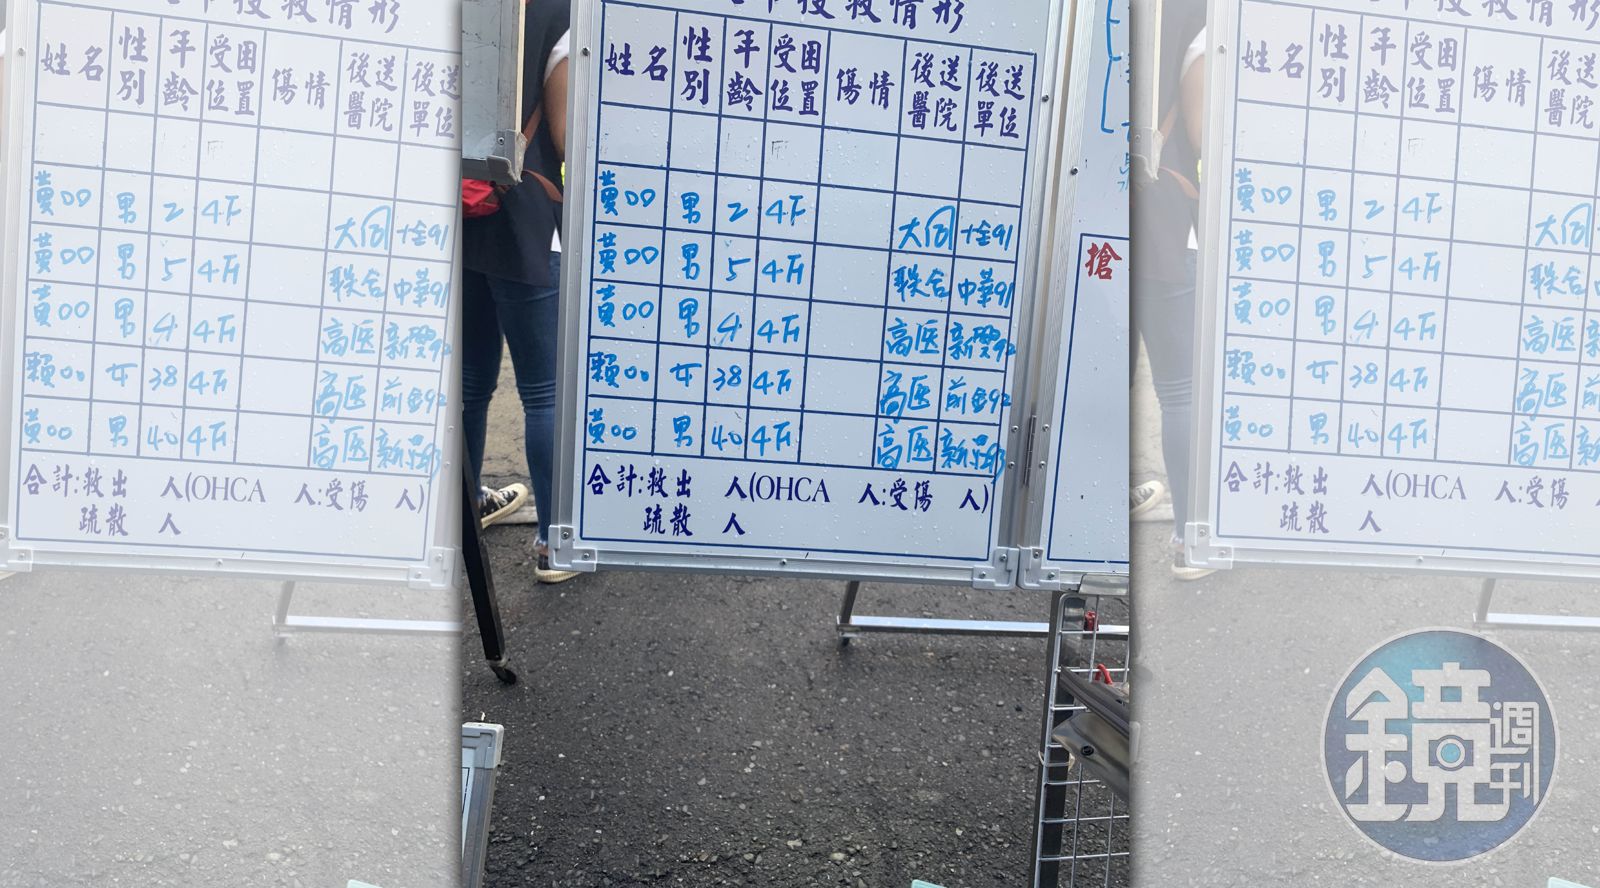 搜救情形
姓名 性別 年齡 受困位置 傷情 後送醫院 後送單位
黃00 男 2 4F 大同
黃00 男 5 4F 聯合 中華91
黃00 男 4 4F 高医 新興92
賴00 女 38 4F 高医 前金92
黃00 男 40 4F 高医
合計:救出 人(OHCA 人:受傷 人)
疏散 人
搶
鏡週刊